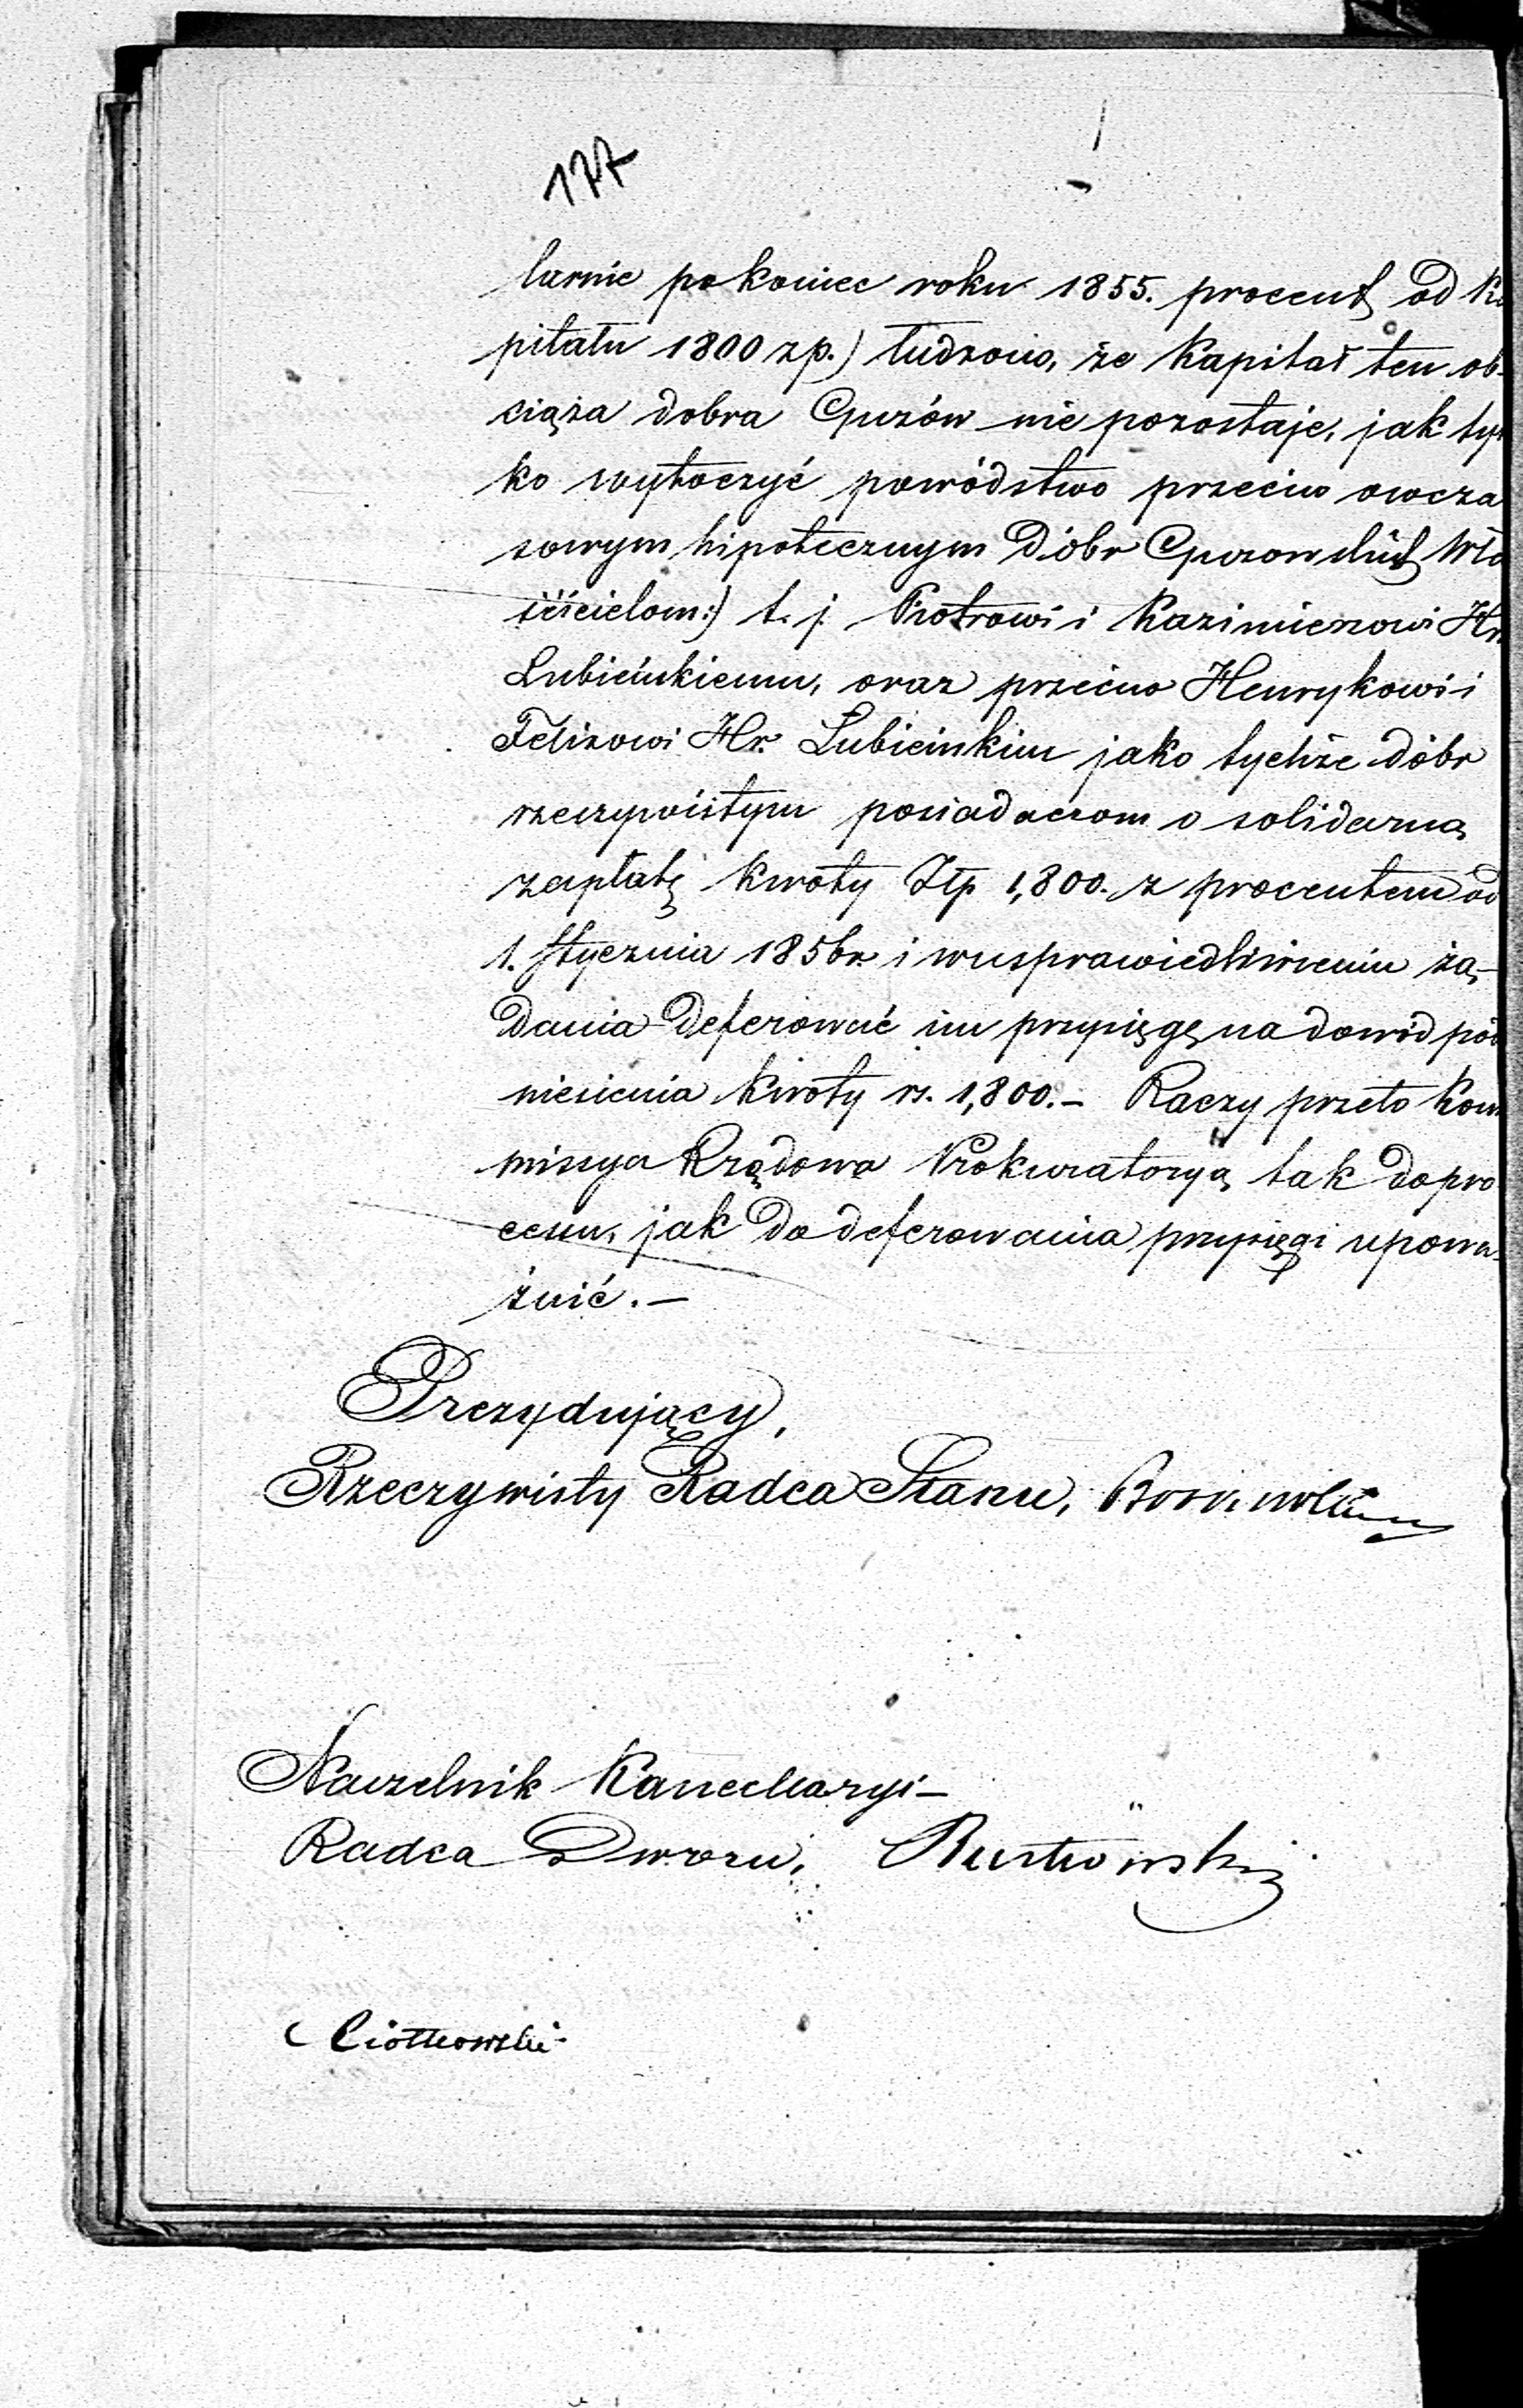 177
larnie po koniec roku 1855. procent od Ka
pitału 1800 zp.) tudzono, że Kapitał ten ob-
ciąża dobra Guzów nie pozostaje, jak tyl
ko wytoczyć powództwo przeciw owcza
sowym hipotecznym Dóbr Guzowskich Wła
ścicielom:) t. j. Piotrowi i Kazimierzowi Hr.
Łubieńskiemu, oraz przeciwo Henrykowi i
Felixowi Hr. Łubieńskim jako tychże dóbr
rzeczywistym posiadaczom o solidarną
zapłatę kwoty Złp 1,800. z procentem od
1. Stycznia 1856 r. i w usprawiedliwieniu żą-
dania deferować im przysięgę na dowód pod
niesienia kwoty rs. 1,800.– Raczy przeto Kom
missya Rządowa Prokuratoryą tak do pro
cesu, jak do deferowania przysięgi upowa-
żnić.–
Prezydujący,
Rzeczywisty Radca Stanu,
Naczelnik Kancellaryi–
Radca Dworu,